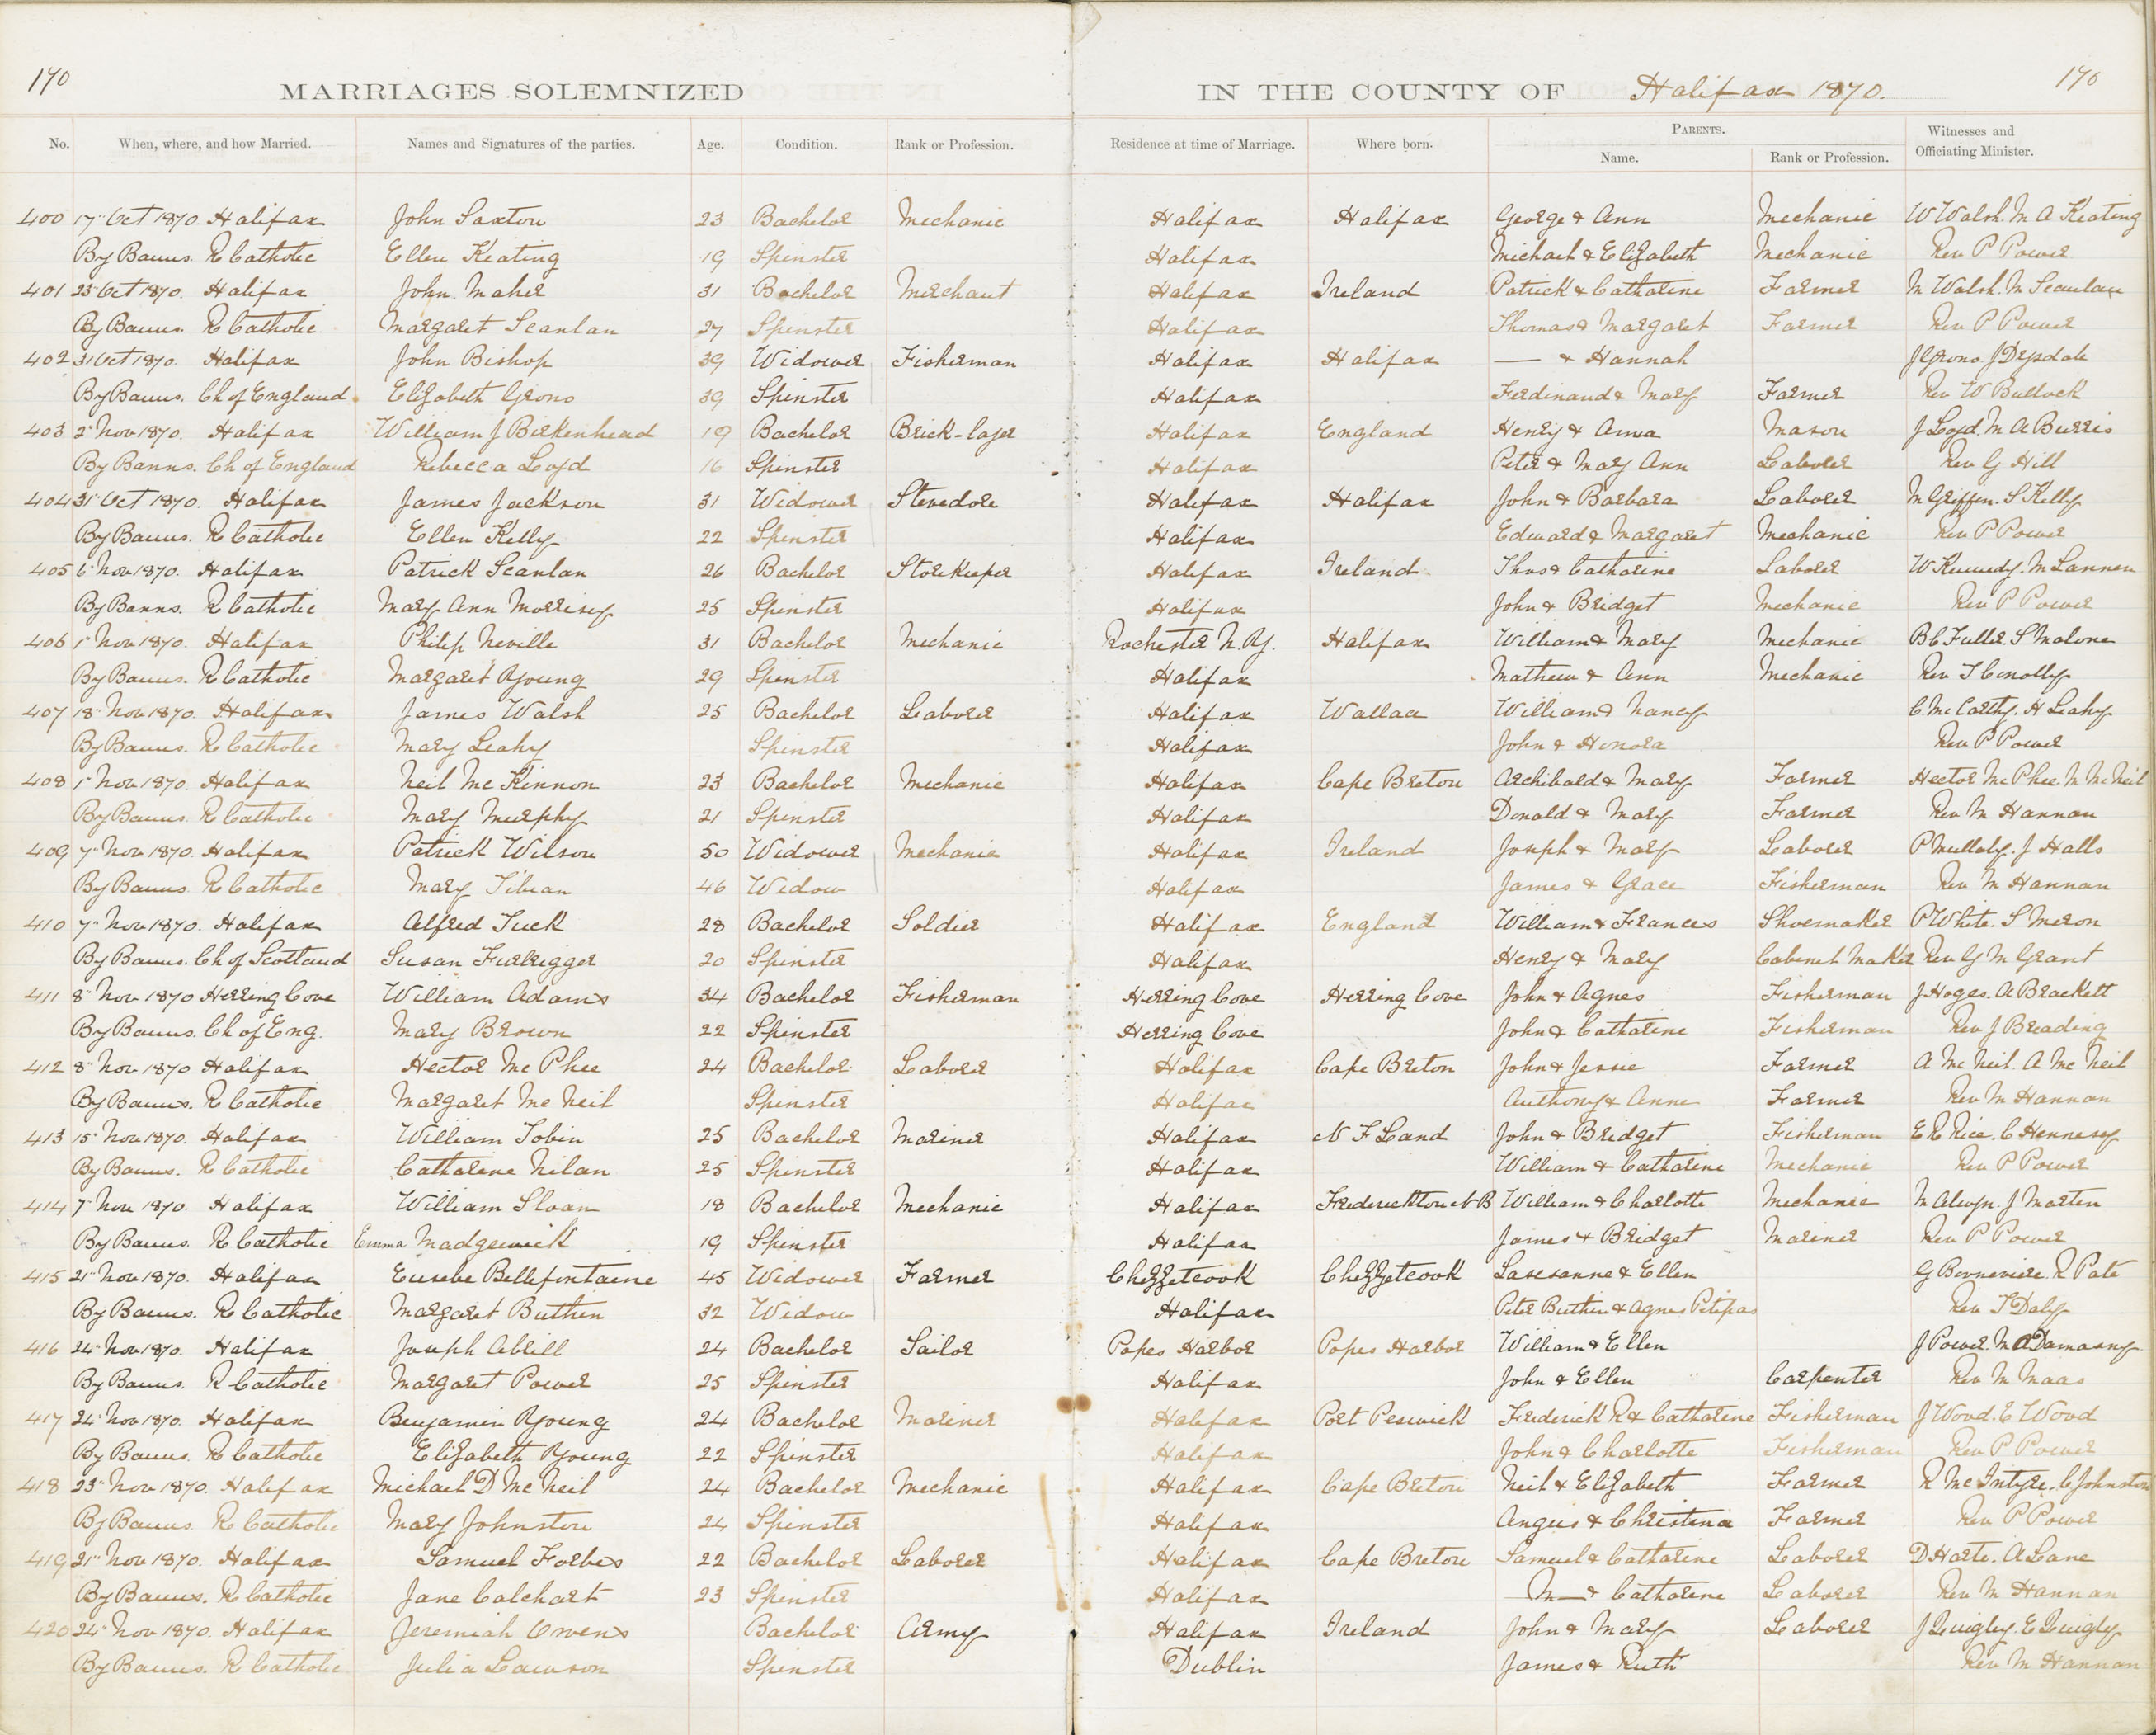 170
170
MARRIAGES SOLEMNIZED IN THE COUNTY OF Halifax 1870.
No. When, where, and how Married. Names and Signatures of the parties. Age. Condition. Rank or Profession. Residence at time of Marriage. Where born. PARENTS. Name. Rank or Profession. Witnesses and Officiating Minister.
400 17" Oct 1870. Halifax John Saxton 23 Bachelor Mechanic Halifax Halifax George & Ann Mechanic W Walsh. M A Keating
By Banns. R Catholic Ellen Keating 19 Spinster Halifax Michael & Elizabeth Mechanic Rev P Power
401 25" Oct 1870. Halifax John Maher 31 Bachelor Merchant Halifax Ireland Patrick & Catharine Farmer M Walsh. M Scanlan
By Banns. R Catholic Margaret Scanlan 27 Spinster Halifax Thomas & Margaret Farmer Rev P Power
402 31 Oct 1870. Halifax John Bishop 39 Widower Fisherman Halifax Halifax — & Hannah J Grono. J Drysdale
By Banns. Ch of England. Elizabeth Grono 39 Spinster Halifax Ferdinand & Mary Farmer Rev W Bullock
403 2" Nov 1870. Halifax William J Birkenhead 19 Bachelor Brick-layer Halifax England Henry & Anna Mason J Loyd. M A Burris
By Banns. Ch of England Rebecca Loyd 16 Spinster Halifax Peter & Mary Ann Laborer Rev G Hill
404 31" Oct 1870. Halifax James Jackson 31 Widower Stevedore Halifax Halifax John & Barbara Laborer M Griffen. S Kelly
By Banns. R Catholic Ellen Kelly 22 Spinster Halifax Edward & Margaret Mechanic Rev P Power
405 6" Nov 1870. Halifax Patrick Scanlan 26 Bachelor Storekeeper Halifax Ireland Thos & Catharine Laborer W Kennedy. M Lannen
By Banns. R Catholic Mary Ann Morrisey 25 Spinster Halifax John & Bridget Mechanic Rev P Power
406 1" Nov 1870. Halifax Philip Neville 31 Bachelor Mechanic Rochester N.Y. Halifax William & Mary Mechanic B C Fuller. S Malone
By Banns. R Catholic Margaret Young 29 Spinster Halifax Mathew & Ann Mechanic Rev T Conolly
407 18" Nov 1870. Halifax James Walsh 25 Bachelor Laborer Halifax Wallace William & Nancy C. McCarthy. H Leahy
By Banns. R Catholic Mary Leahy Spinster Halifax John & Honora Rev P Power
408 1" Nov 1870. Halifax Neil McKinnon 23 Bachelor Mechanic Halifax Cape Breton Archibald & Mary Farmer Hector McPhee N McNeil
By Banns. R Catholic Mary Murphy 21 Spinster Halifax Donald & Mary Farmer Rev M Hannan
409 7" Nov 1870. Halifax Patrick Wilson 50 Widower Mechanic Halifax Ireland Joseph & Mary Laborer P Mullaly. J Halls
By Banns. R Catholic Mary Tibean 46 Widow Halifax James & Grace Fisherman Rev M Hannan
410 7" Nov 1870. Halifax Alfred Tuck 28 Bachelor Soldier Halifax England William & Frances Shoemaker P White. S Meron
By Banns. Ch of Scotland Susan Furbrigger 20 Spinster Halifax Henry & Mary Cabinet Maker Rev G M Grant
411 8" Nov 1870 Herring Cove William Adams 34 Bachelor Fisherman Herring Cove Herring Cove John & Agnes Fisherman J Hoges. A Brackett
By Banns. Ch of Eng. Mary Brown 22 Spinster Herring Cove John & Catharine Fisherman Rev J Breading
412 8" Nov 1870 Halifax Hector McPhee 24 Bachelor Laborer Halifax Cape Breton John & Jessie Farmer A McNeil. A McNeil
By Banns. R Catholic Margaret McNeil Spinster Halifax Anthony & Anne Farmer Rev M Hannan
413 15" Nov 1870. Halifax William Tobin 25 Bachelor Mariner Halifax N F Land John & Bridget Fisherman E R Rice. C Hennesy
By Banns. R Catholic Catharine Nilan 25 Spinster Halifax William & Catharine Mechanic Rev P Power
414 7" Nov 1870. Halifax William Sloan 18 Bachelor Mechanic Halifax Frederickton N B William & Charlotte Mechanic M Alwyn. J Marten
By Banns. R Catholic Emma Madgewick 19 Spinster Halifax James & Bridget Mariner Rev P Power
415 21" Nov 1870. Halifax Eusebe Bellefontaine 45 Widower Farmer Chezzetcook Chezzetcook Lasesanne & Ellen G Bonnevire. R Pate
By Banns. R Catholic Margaret Buthen 32 Widow Halifax Peter Buthen & Agnes Petipas Rev T Daly
416 24" Nov 1870. Halifax Joseph Abrill 24 Bachelor Sailor Popes Harbor Popes Harbor William & Ellen J Power. M Damasny
By Banns. R Catholic Margaret Power 25 Spinster Halifax John & Ellen Carpenter Rev M Maas
417 24" Nov 1870. Halifax Benjamin Young 24 Bachelor Mariner Halifax Port Peswick Frederick R & Catharine Fisherman J Wood. E Wood
By Banns. R Catholic Elizabeth Young 22 Spinster Halifax John & Charlotte Fisherman Rev P Power
418 23" Nov 1870. Halifax Michael D McNeil 24 Bachelor Mechanic Halifax Cape Breton Neil & Elizabeth Farmer R McIntyre. C Johnston
By Banns. R Catholic Mary Johnston 24 Spinster Halifax Angus & Christina Farmer Rev P Power
419 21" Nov 1870. Halifax Samuel Forbes 22 Bachelor Laborer Halifax Cape Breton Samuel & Catharine Laborer D Harte. A Lane
By Banns. R Catholic Jane Calchart 23 Spinster Halifax M— & Catharine Laborer Rev M Hannan
420 24" Nov 1870. Halifax Jeremiah Owens Bachelor Army Halifax Ireland John & Mary Laborer J Quigley. E Quigly
By Banns. R Catholic Julia Lawson Spinster Dublin James & Ruth Rev M Hannan